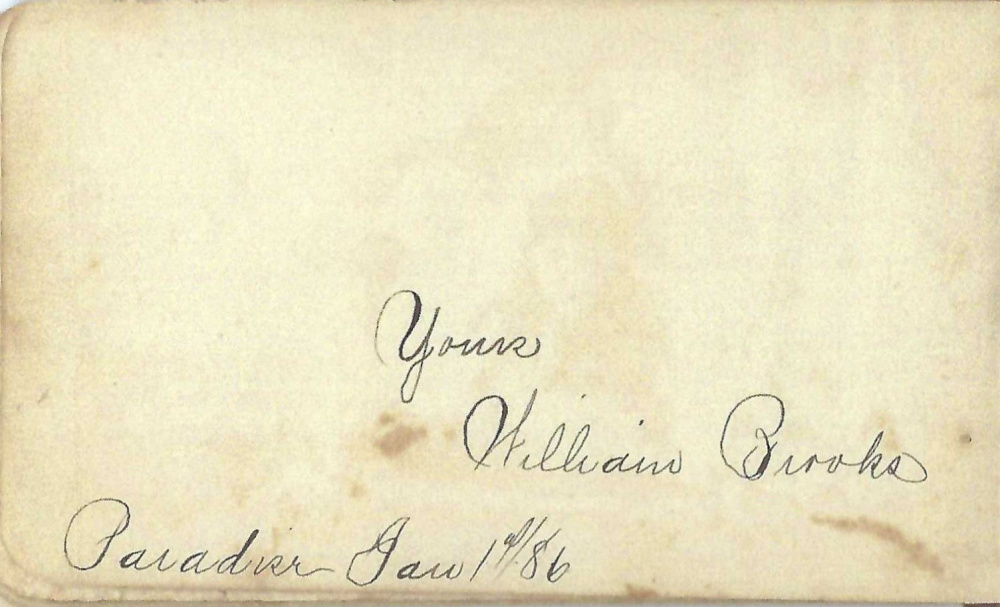 Yours
William Brooks
Paradise Jan 1st/86